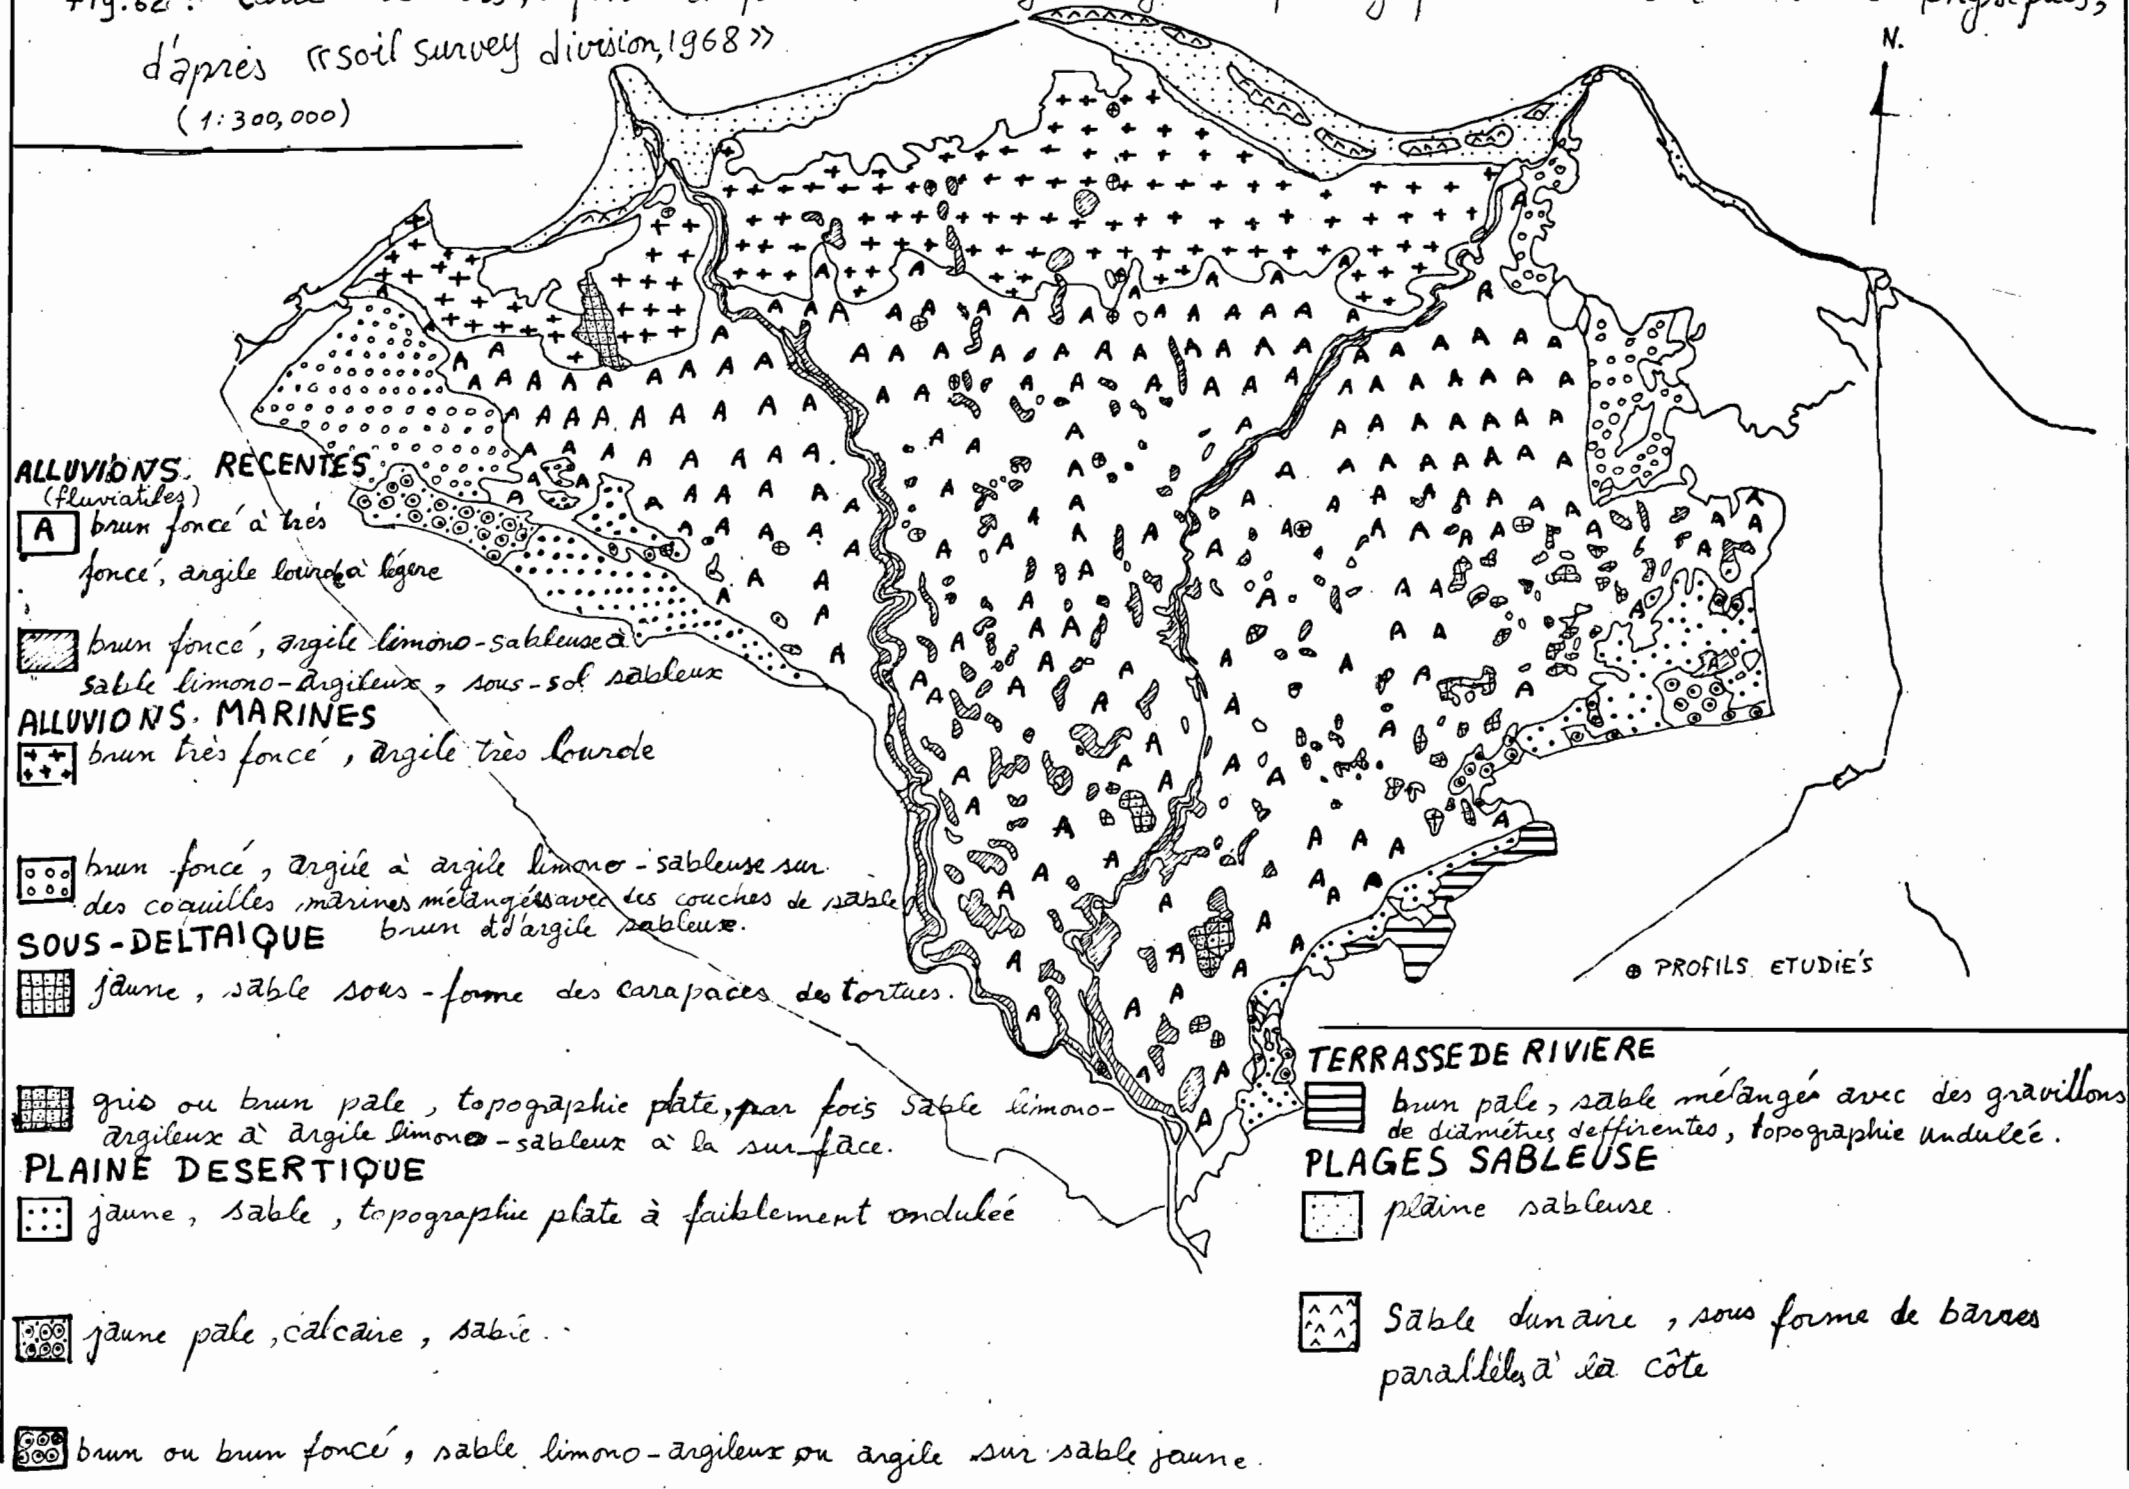 Fig.
d'après «soil survey division, 1968»
(1:300,000)
N.
ALLUVIONS. RECENTES
(fluviatiles)
A brun foncé à trés
foncé, argile lourde à légere
brun foncé, argile limono-sableuse à
sable limono-argileux, sous-sol sableux
ALLUVIONS. MARINES
brun très foncé, argile très lourde
brun foncé, argile à argile limono-sableuse sur
des coquilles marines mélangées avec des couches de sable
brun et d'argile sableux.
SOUS-DELTAIQUE
jaune, sable sous-forme des carapaces des tortues.
gris ou brun pale, topographie plate, par fois sable limono-
argileux à argile limono-sableux à la surface.
PLAINE DESERTIQUE
jaune, sable, topographie plate à faiblement ondulée
jaune pale, calcaire, sable.
brun ou brun foncé, sable limono-argileux ou argile sur sable jaune.
⊕ PROFILS ETUDIÉS
TERRASSE DE RIVIERE
brun pale, sable mélangé avec des gravillons
de diamétres deffirentes, topographie undulée.
PLAGES SABLEUSE
plaine sableuse.
Sable dunaire, sous forme de barres
parallélés à la côte